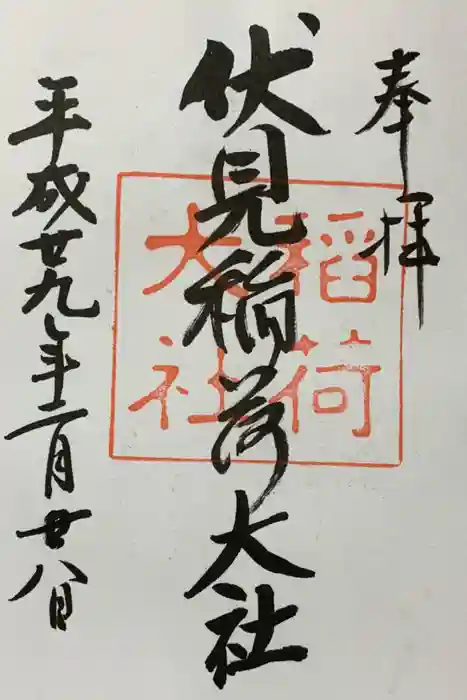 奉拝
伏見稲荷大社
平成廿九年二月廿八日
稲荷
大社